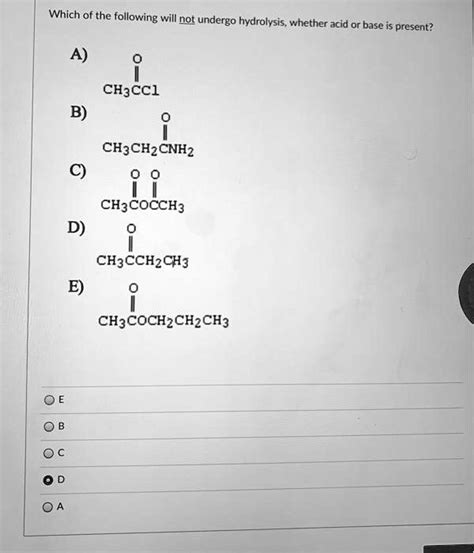 Which of the following will not undergo hydrolysis, whether acid or base is present?
A)
O
CH3CCl
B)
O
CH3CH2CNH2
C)
O O
CH3COCCH3
D)
O
CH3CCH2CH3
E)
O
CH3COCH2CH2CH3
E
B
C
D
A